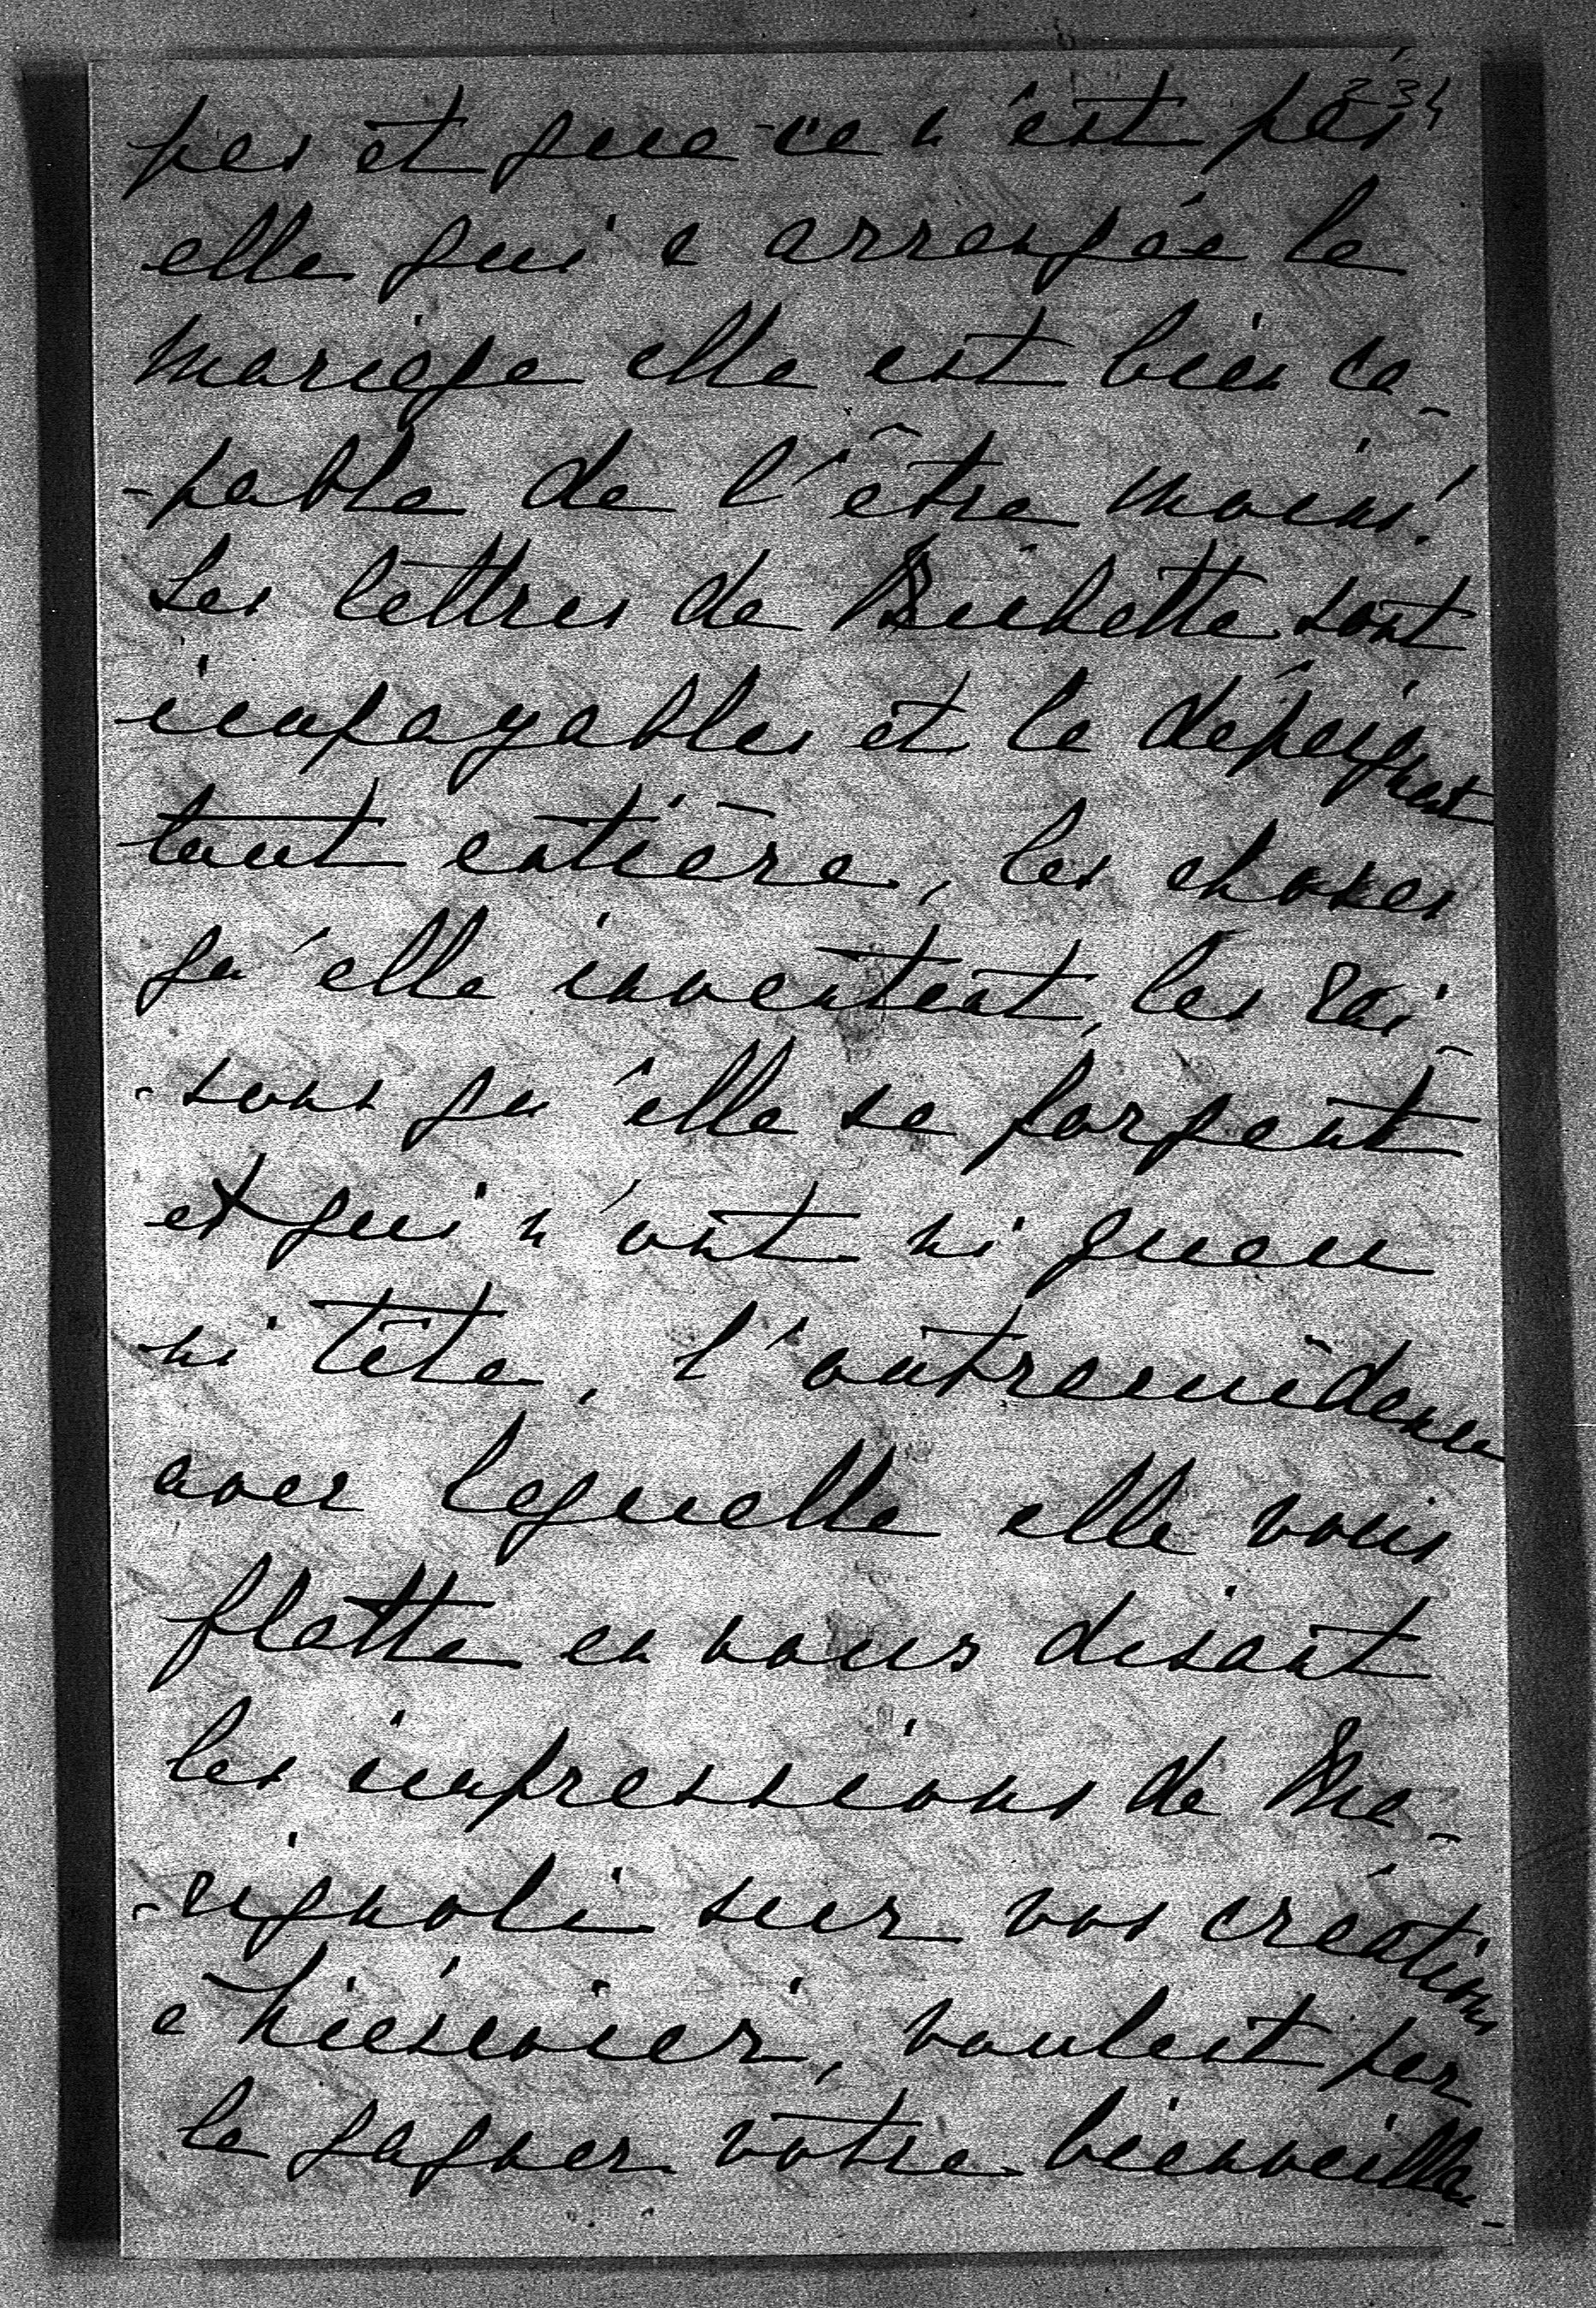 234
pas et que ce n'est pas
elle qui a arrangée le
mariage elle est bien ca-
-pable de l'être moins!
Les lettres de Bichette sont
impayables et la dépeignent
tout entière, les choses
qu'elle inventent, les rai-
-sons qu'elle se forgent
et qui n'ont ni queu
ni tête, l'outrecuidence
avec laquelle elle vous
flatte en vous disant
les impressions de Ma-
-rignoli sur vos créations
a voulant par
la gagner votre bienveilla-